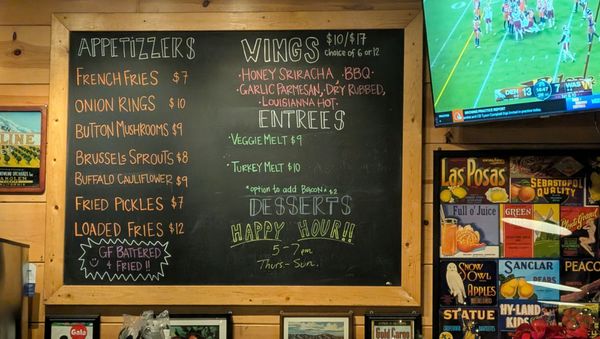 APPETIZZERS
FRENCH FRIES $7
ONION RINGS $10
BUTTON MUSHROOMS $9
BRUSSELS SPROUTS $8
BUFFALO CAULIFLOWER $9
FRIED PICKLES $7
LOADED FRIES $12
GF BATTERED
& FRIED !!
WINGS $10/$17
CHOICE OF 6 OR 12
·HONEY SRIRACHA, BBQ
·GARLIC PARMESAN, DRY RUBBED,
LOUISIANNA HOT·
ENTREES
·VEGGIE MELT $9
·TURKEY MELT $10
*option to add BACON $2
DESSERTS
HAPPY HOUR!!
5-7pm
Thurs-Sun.
DEN 13 7 WAS
Las Posas
SEBASTOPOL
QUALITY
FULL O' JUICE
GREEN
Plenty Grand
SNOW
OWL
APPLES
SANCLAR
PEACO
HYLAND
KIDS
STATUE
LINE
Gala
Gold